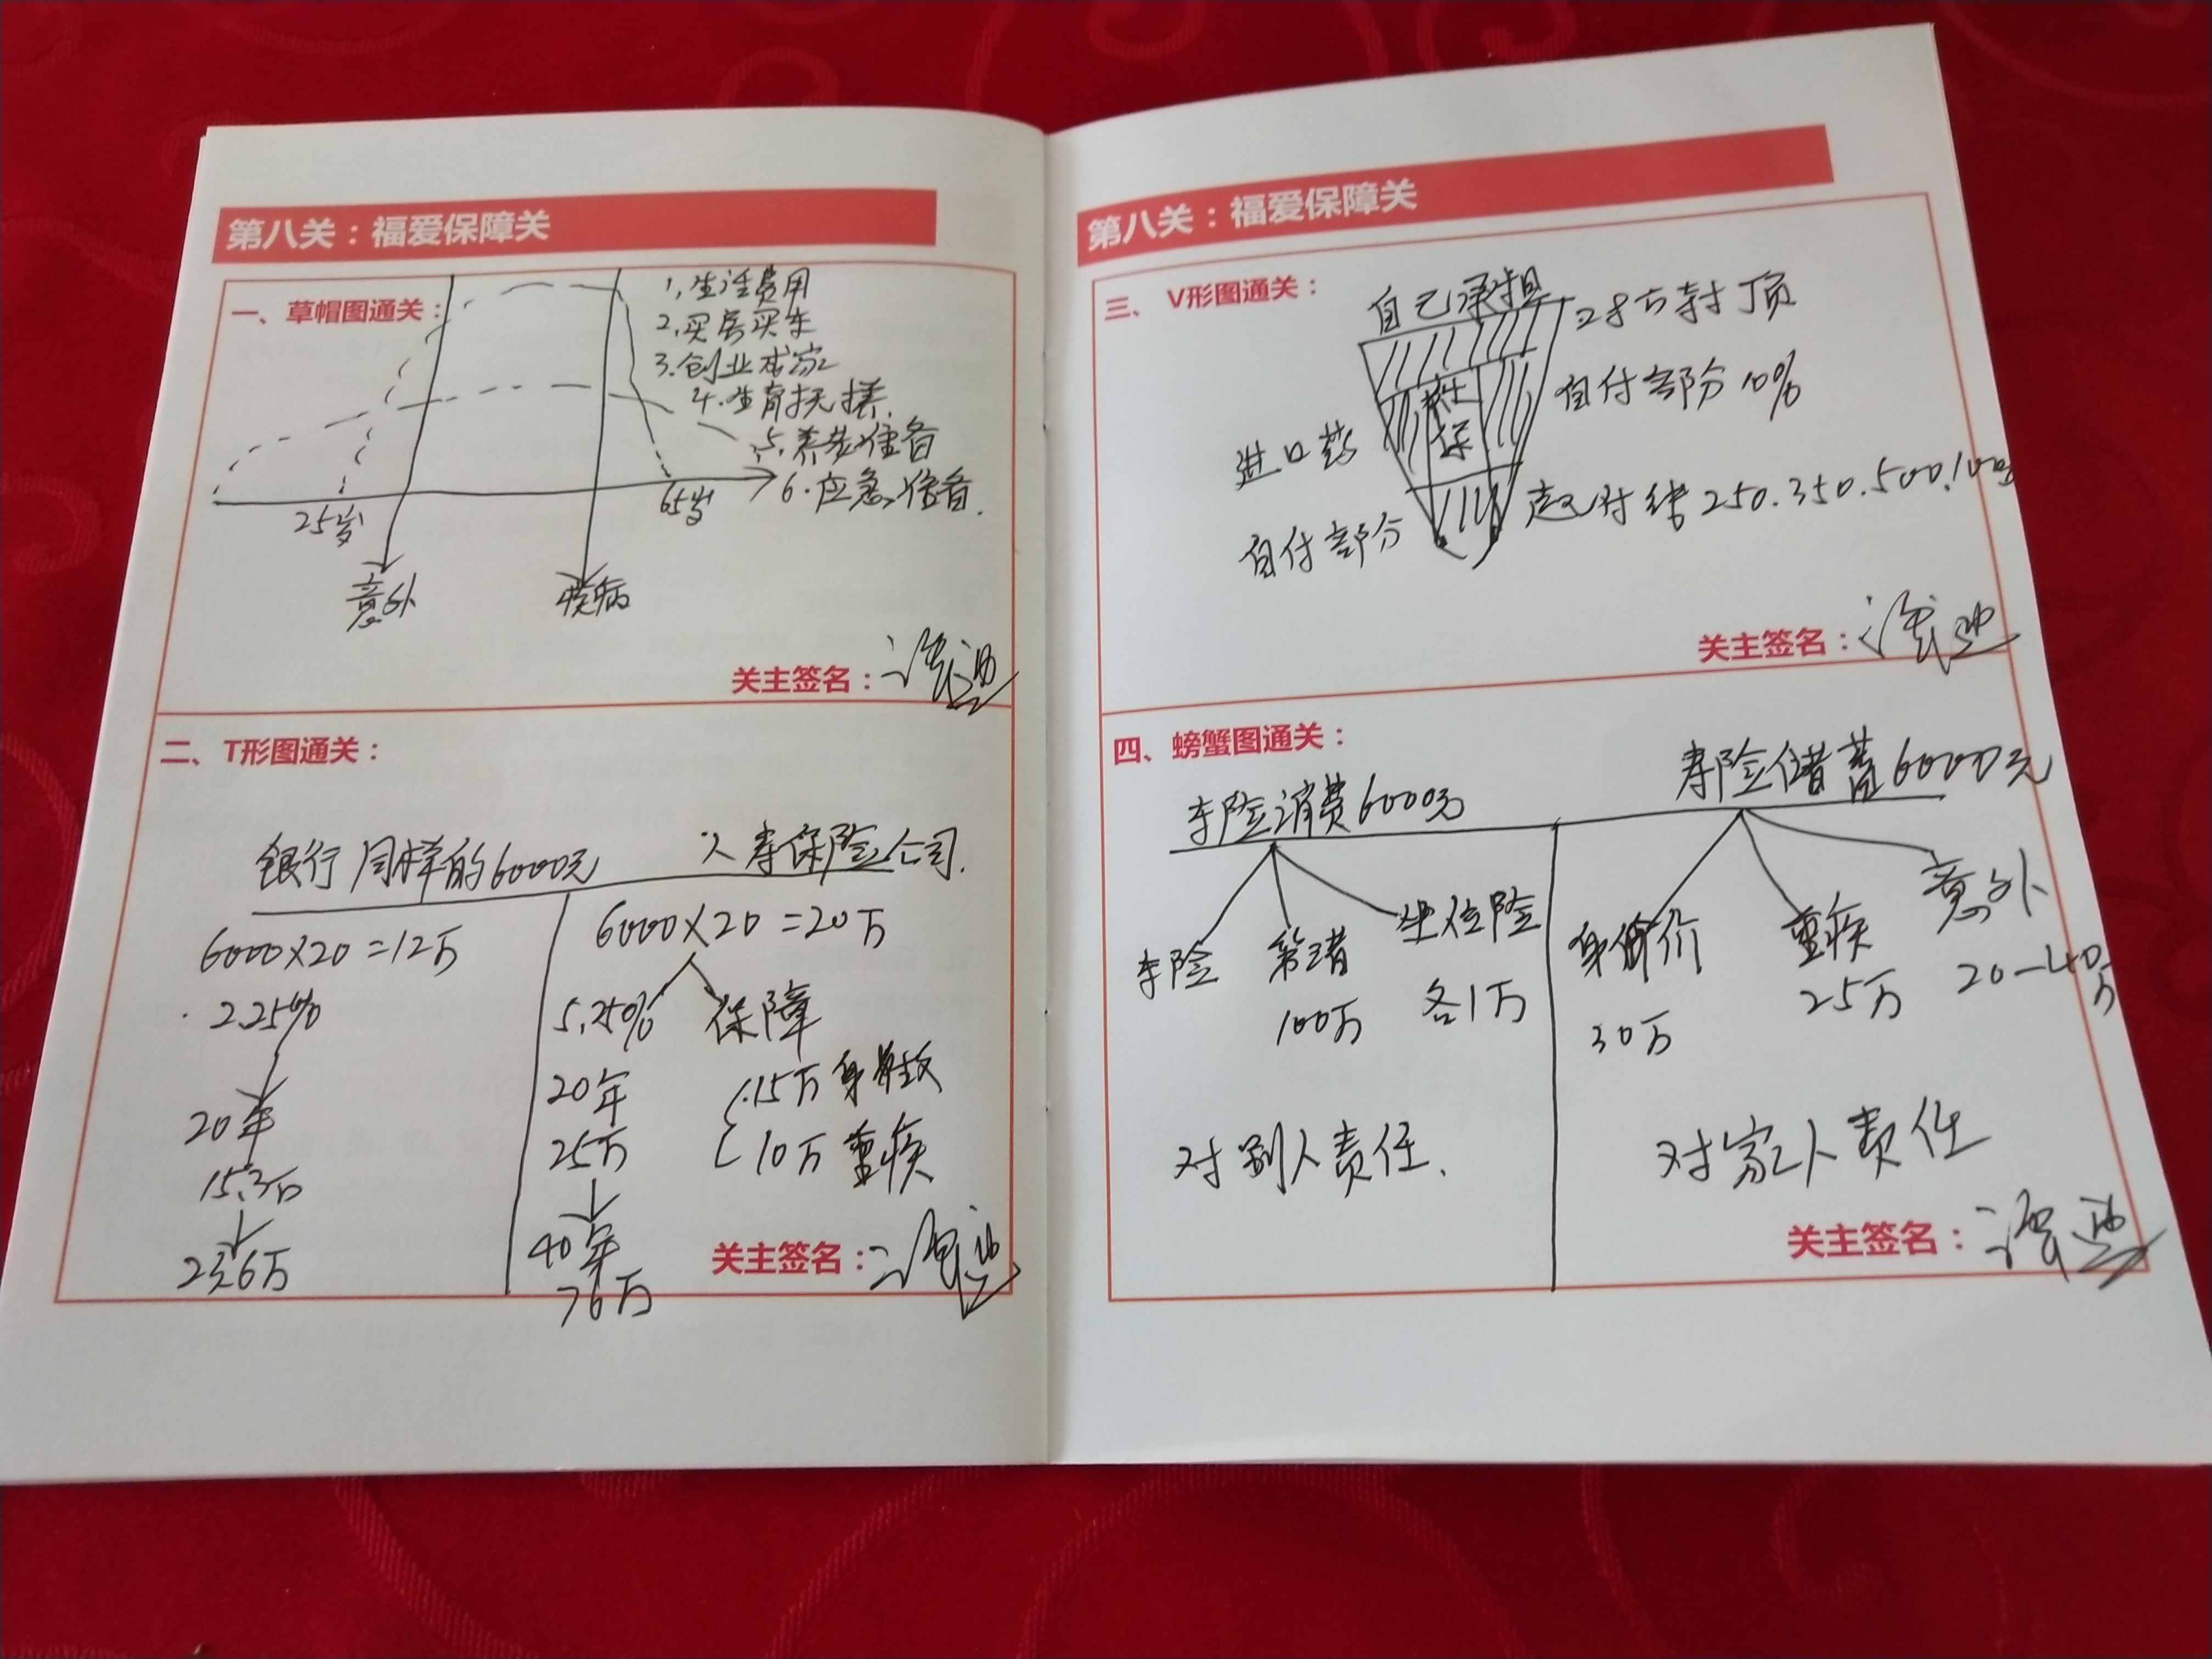 第八关：福爱保障关
一、草帽图通关：
1，生活费用
2，买房买车
3.创业成家
4.生育抚养.
5，养老准备
6.应急准备.
25岁
65岁
意外
疾病
关主签名：
二、T形图通关：
银行 同样的6000元 人寿保险公司.
6000×20=12万
2.25%
20年
15.3万
23.6万
6000×20=20万
5.25% 保障
20年
25万
40年
76万
15万身故
10万重疾
关主签名：
第八关：福爱保障关
三、V形图通关：
自己承担
28万封顶
社保
自付部分10%
进口药
起付线250.350.500.
自付部分
关主签名：
四、螃蟹图通关：
车险消费6000元
寿险储蓄6000元
车险
第三者
100万
坐位险
各1万
身价
30万
重疾
25万
意外
20-40万
对别人责任.
对家人责任
关主签名：